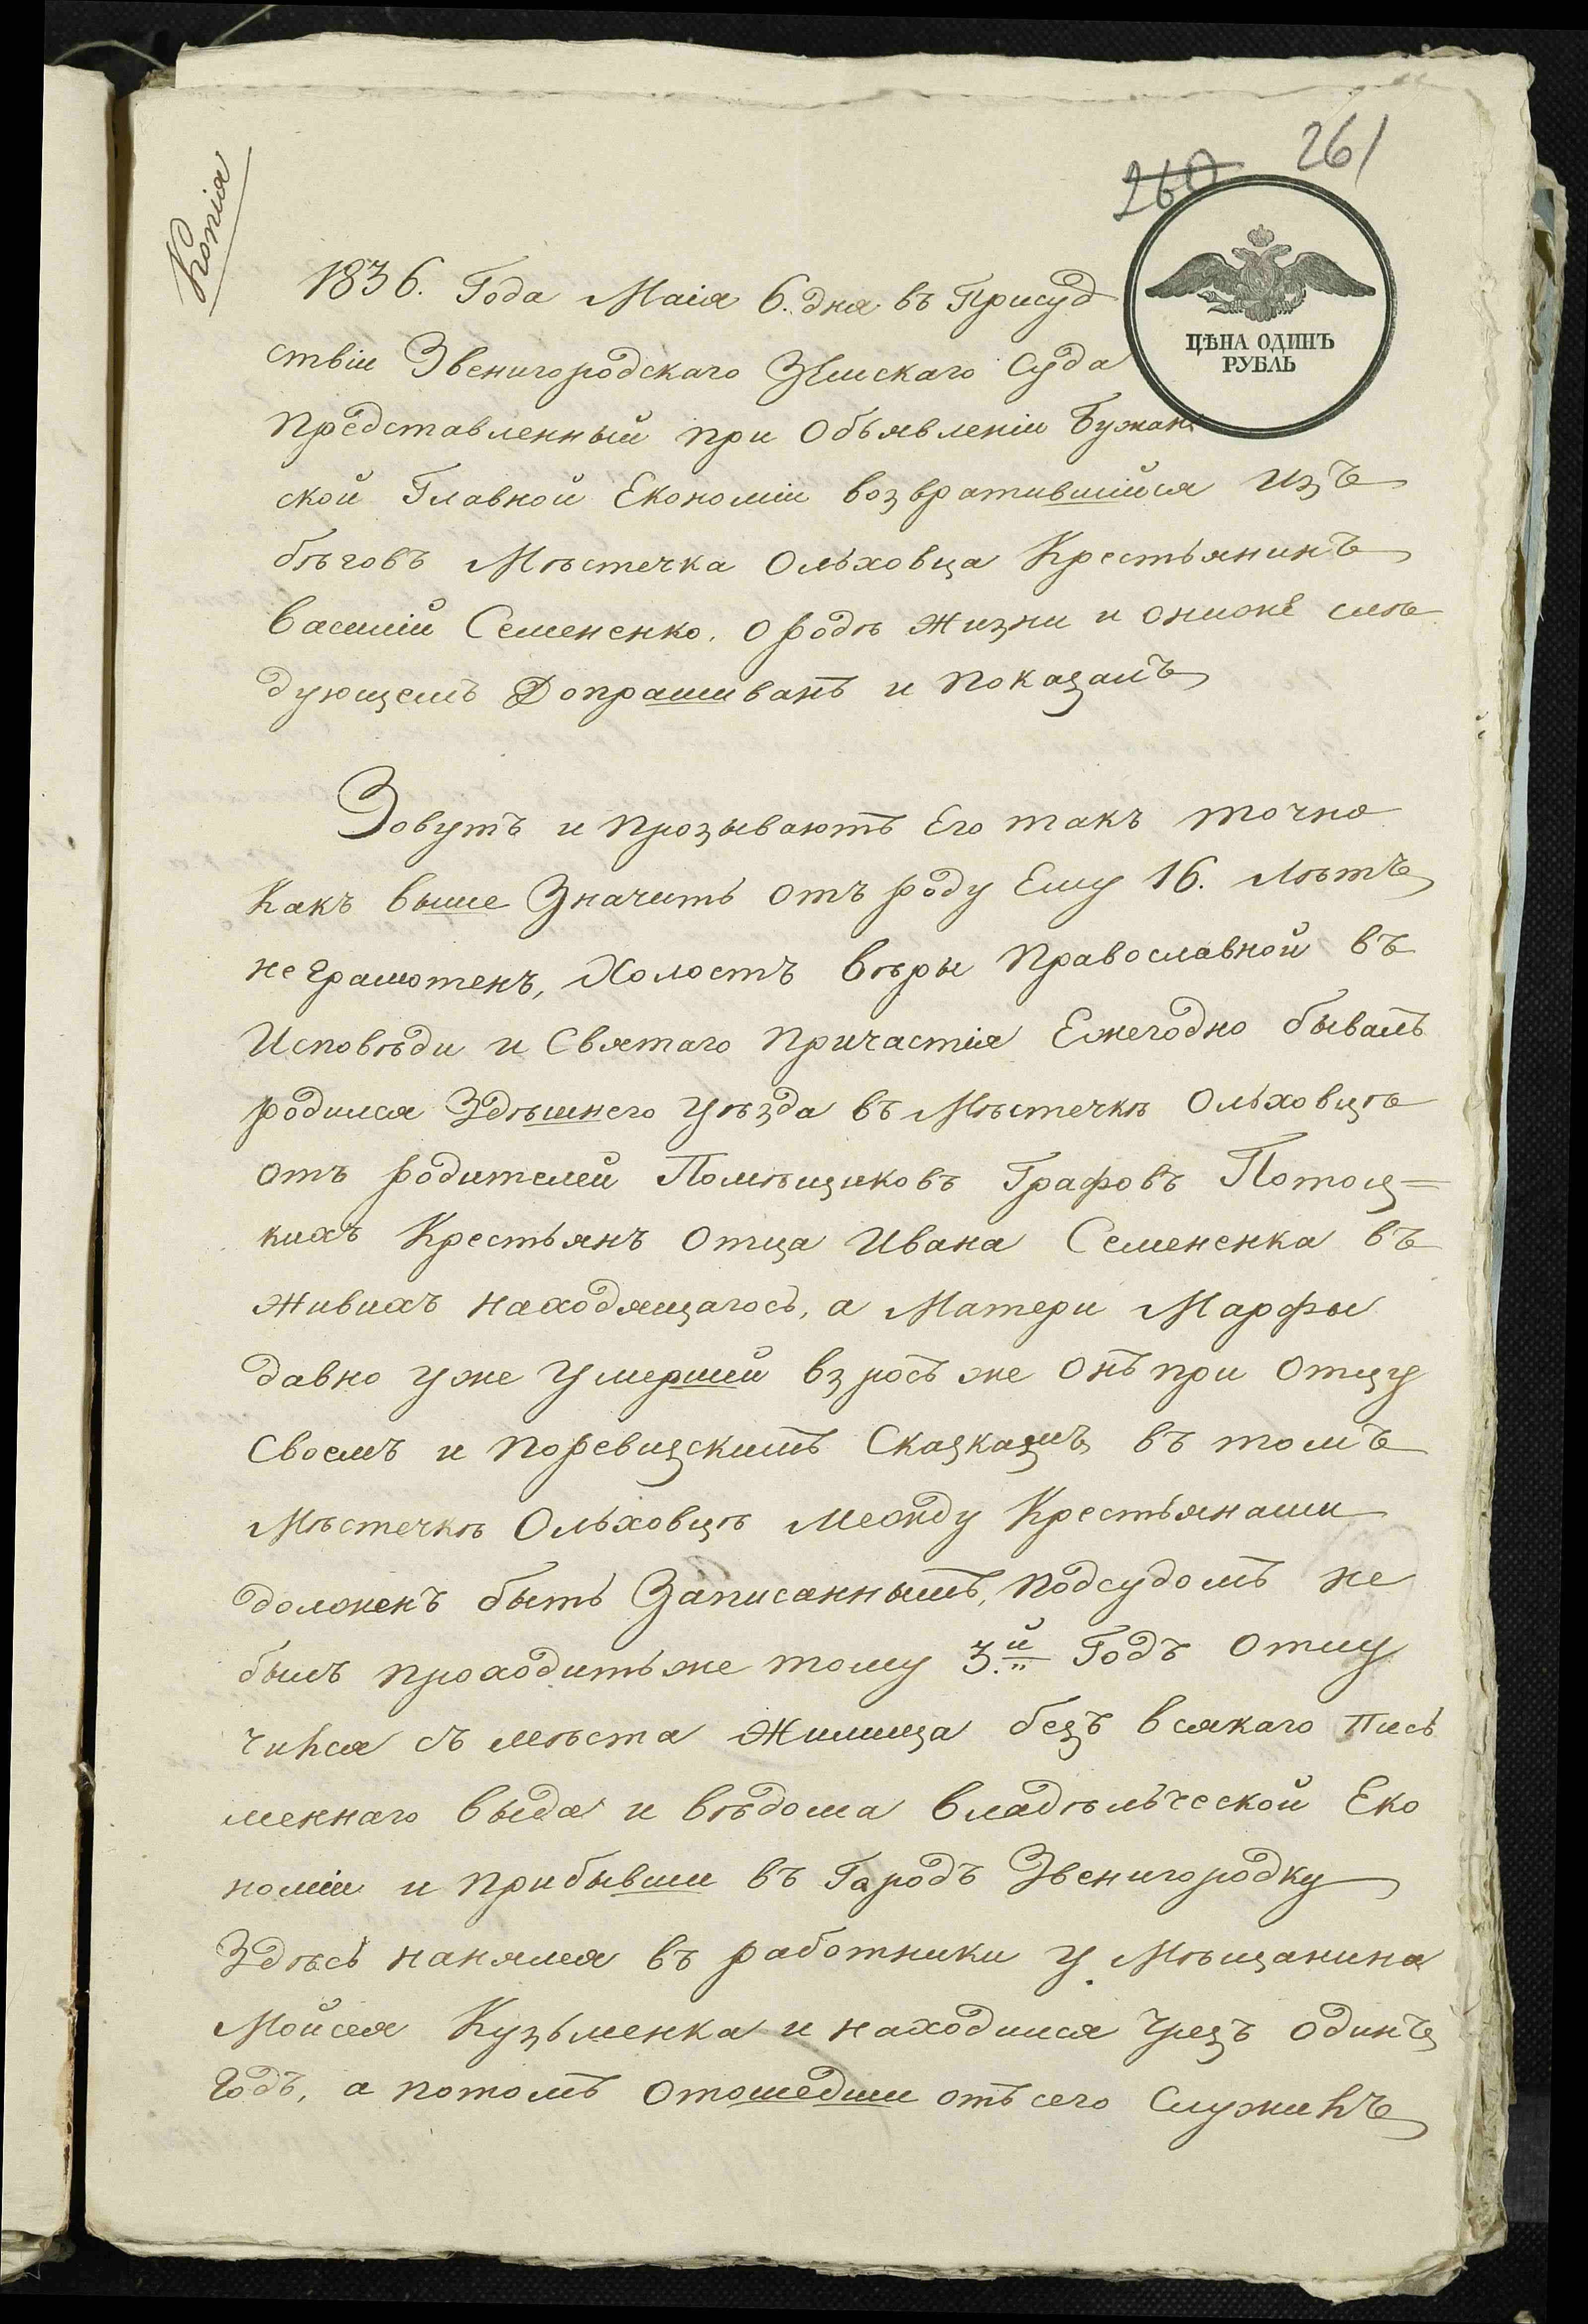 Копія
260 261
ЦѢНА ОДИНЪ
РУБЛЬ
1836. Года Маія 6. дня въ Присуд
ствіи Звенигородскаго Земскаго Суда
представленный при Объявленіи Бужан
ской Главной Економіи возвратившійся Изъ
бѣговъ Мѣстечка Ольховца Крестьянинъ
Василій Семененко. о родѣ жизни и онижеслѣ
дующемъ Допрашиванъ и показалъ
Зовутъ и прозываютъ Его такъ точно
какъ выше Значитъ отъ роду Ему 16. Лѣтъ
не грамотенъ, Холостъ вѣры Православной въ
Исповѣди и Святаго Причастія Ежегодно бывалъ
родился Здѣшнего уѣзда въ Мѣстечкѣ Ольховцѣ
отъ родителей Помѣщиковъ Графовъ Потоц=
кихъ Крестьянъ отца Ивана Семененка въ
живихъ находящагось, а Матери Марфы
давно уже умершей взросъ же онъ при отцу
своемъ и поревизскимъ Сказкамъ въ томъ
Мѣстечкѣ Ольховцѣ между Крестьянами
долженъ быть Записаннымъ, подсудомъ не
былъ проходитъ же тому 3.й Годъ отлу
чился съ мѣста жилища безъ всякаго Пись
меннаго выда и вѣдома владѣльческой Еко
номіи и прибывши въ Городъ Звенигородку
Здѣсь нанялся въ работники у Мѣщанина
Мойсея Кузьменка и находился чрезъ одинъ
Годъ, а потомъ отошедши отъ сего служилъ